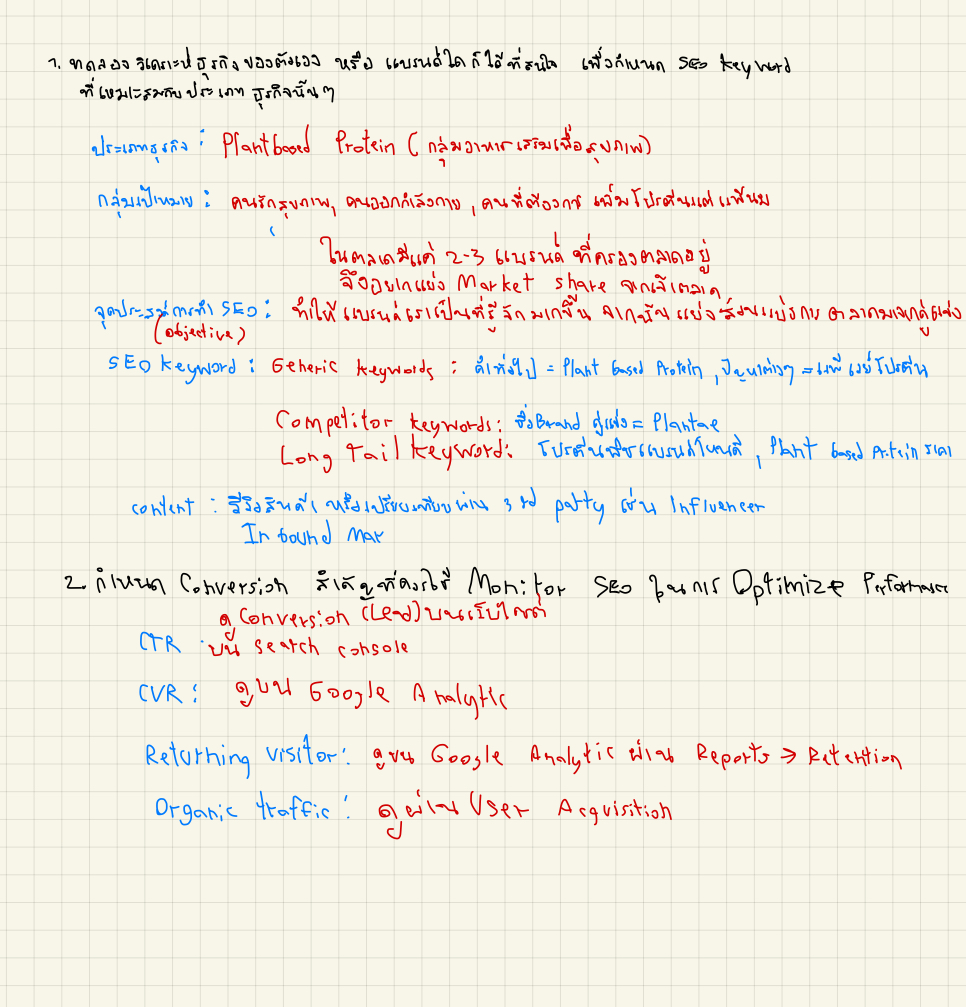 1. ทดลองวิเคราะห์ธุรกิจของตัวเอง หรือ แบรนด์ใดก็ได้ที่สนใจ เพื่อกำหนด SEO keyword
ที่เหมาะสมกับประเภทธุรกิจนั้นๆ
ประเภทธุรกิจ : Plant based Protein (กลุ่มอาหารเสริมเพื่อสุขภาพ)
กลุ่มเป้าหมาย : คนรักสุขภาพ, คนออกกำลังกาย, คนที่ต้องการเพิ่มโปรตีนแต่แพ้นม
ในตลาดมีแค่ 2-3 แบรนด์ ที่ครองตลาดอยู่
จึงอยากแย่ง Market share จากเจ้าตลาด
จุดประสงค์การทำ SEO : ทำให้แบรนด์เราเป็นที่รู้จักมากขึ้น จากนั้นแย่งส่วนแบ่งการตลาดมาจากคู่แข่ง
(objective)
SEO keyword : Generic keywords : คำทั่วไป = Plant based Protein, ปัญหาต่างๆ = แพ้เวย์โปรตีน
Competitor keywords: ชื่อBrand คู่แข่ง = Plantae
Long Tail keyword: โปรตีนพืชแบรนด์ไหนดี, Plant based Protein ราคา
content : รีวิวสินค้า หรือเปรียบเทียบผ่าน 3 rd party เช่น Influencer
In bound Mar
2. กำหนด Conversion สำคัญที่ควรใช้ Monitor SEO ในการ Optimize Performance
ดู Conversion (Lead) บนเว็บไซต์
CTR : บน search console
CVR : ดูบน Google Analytic
Returning visitor : ดูบน Google Analytic ผ่าน Reports → Retention
Organic traffic : ดูผ่าน User Acquisition